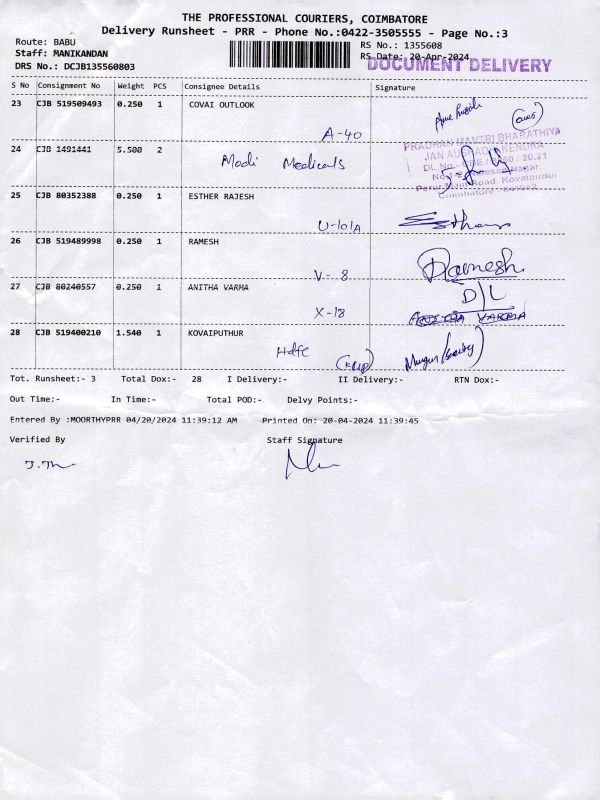 THE PROFESSIONAL COURIERS, COIMBATORE
Delivery Runsheet - PRR - Phone No.:0422-3505555 - Page No.:3
Route: BABU
RS No.: 1355608
Staff: MANIKANDAN
RS Date: 20-Apr-2024
DRS No.: DCJB135560803
DOCUMENT DELIVERY
S No Consignment No Weight PCS Consignee Details Signature
23 CJB 519509493 0.250 1 COVAI OUTLOOK
A-40
24 CJB 1491441 5.500 2
Modi Medicals
PRADHAN MANTRI BHARATHIYA
JAN AUSHADHI KENDRA
Perur Main Road, Kovaipudur
Coimbatore - 641042
25 CJB 80352388 0.250 1 ESTHER RAJESH
U-101A Esther
26 CJB 519489998 0.250 1 RAMESH
V-8 Ramesh
27 CJB 80240557 0.250 1 ANITHA VARMA
D/L
X-18 ANITHA VARMA
28 CJB 519400210 1.540 1 KOVAIPUTHUR
Hdfc
Tot. Runsheet:- 3 Total Dox:- 28 I Delivery:- II Delivery:- RTN Dox:-
Out Time:- In Time:- Total POD:- Delvy Points:-
Entered By :MOORTHYPRR 04/20/2024 11:39:12 AM Printed On: 20-04-2024 11:39:45
Verified By Staff Signature